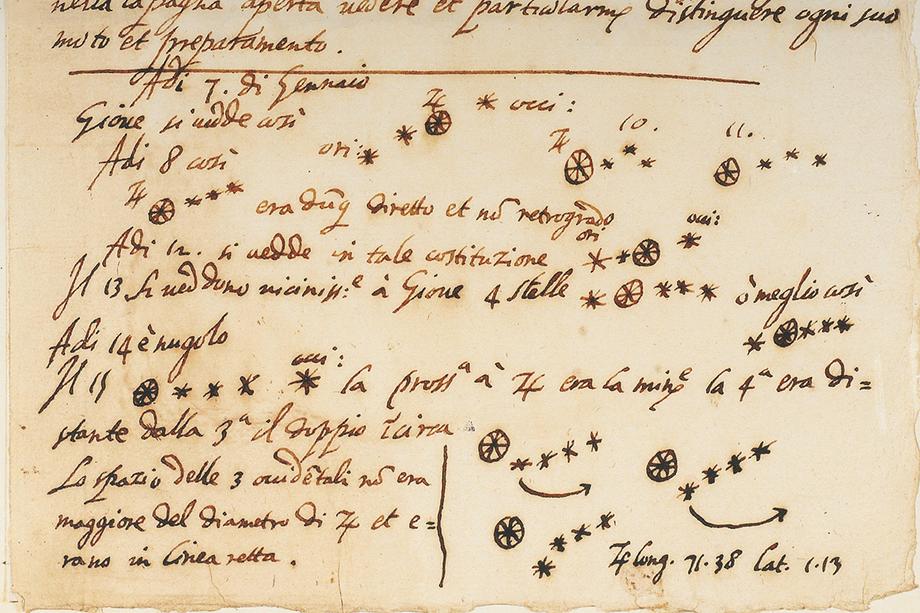 nella capagna aperta vedere et particularmẽ distinguere ogni suo
moto et preparamento.
Adi 7. di Gennaio
Giove si vedde così
♃ occi:
ori:
♃ 10. 11.
Adi 8 così
♃
era dũq diretto et nõ retrogrado
Adi 12. si vedde in tale costituzione
ori occi:
Il 13 si veddono viciniss:ᵉ à Giove 4 stelle ò meglio così
Adi 14 è nugolo
Il 15 occi: la prossᵃ à ♃ era la minᵉ la 4ᵃ era di=
stante dalla 3ᵃ il doppio ĩ circa
Lo spazio delle 3 occidẽtali nõ era
maggiore del diametro di ♃ et e=
rano in linea retta.
♃ long. 71.38 lat. 1.13